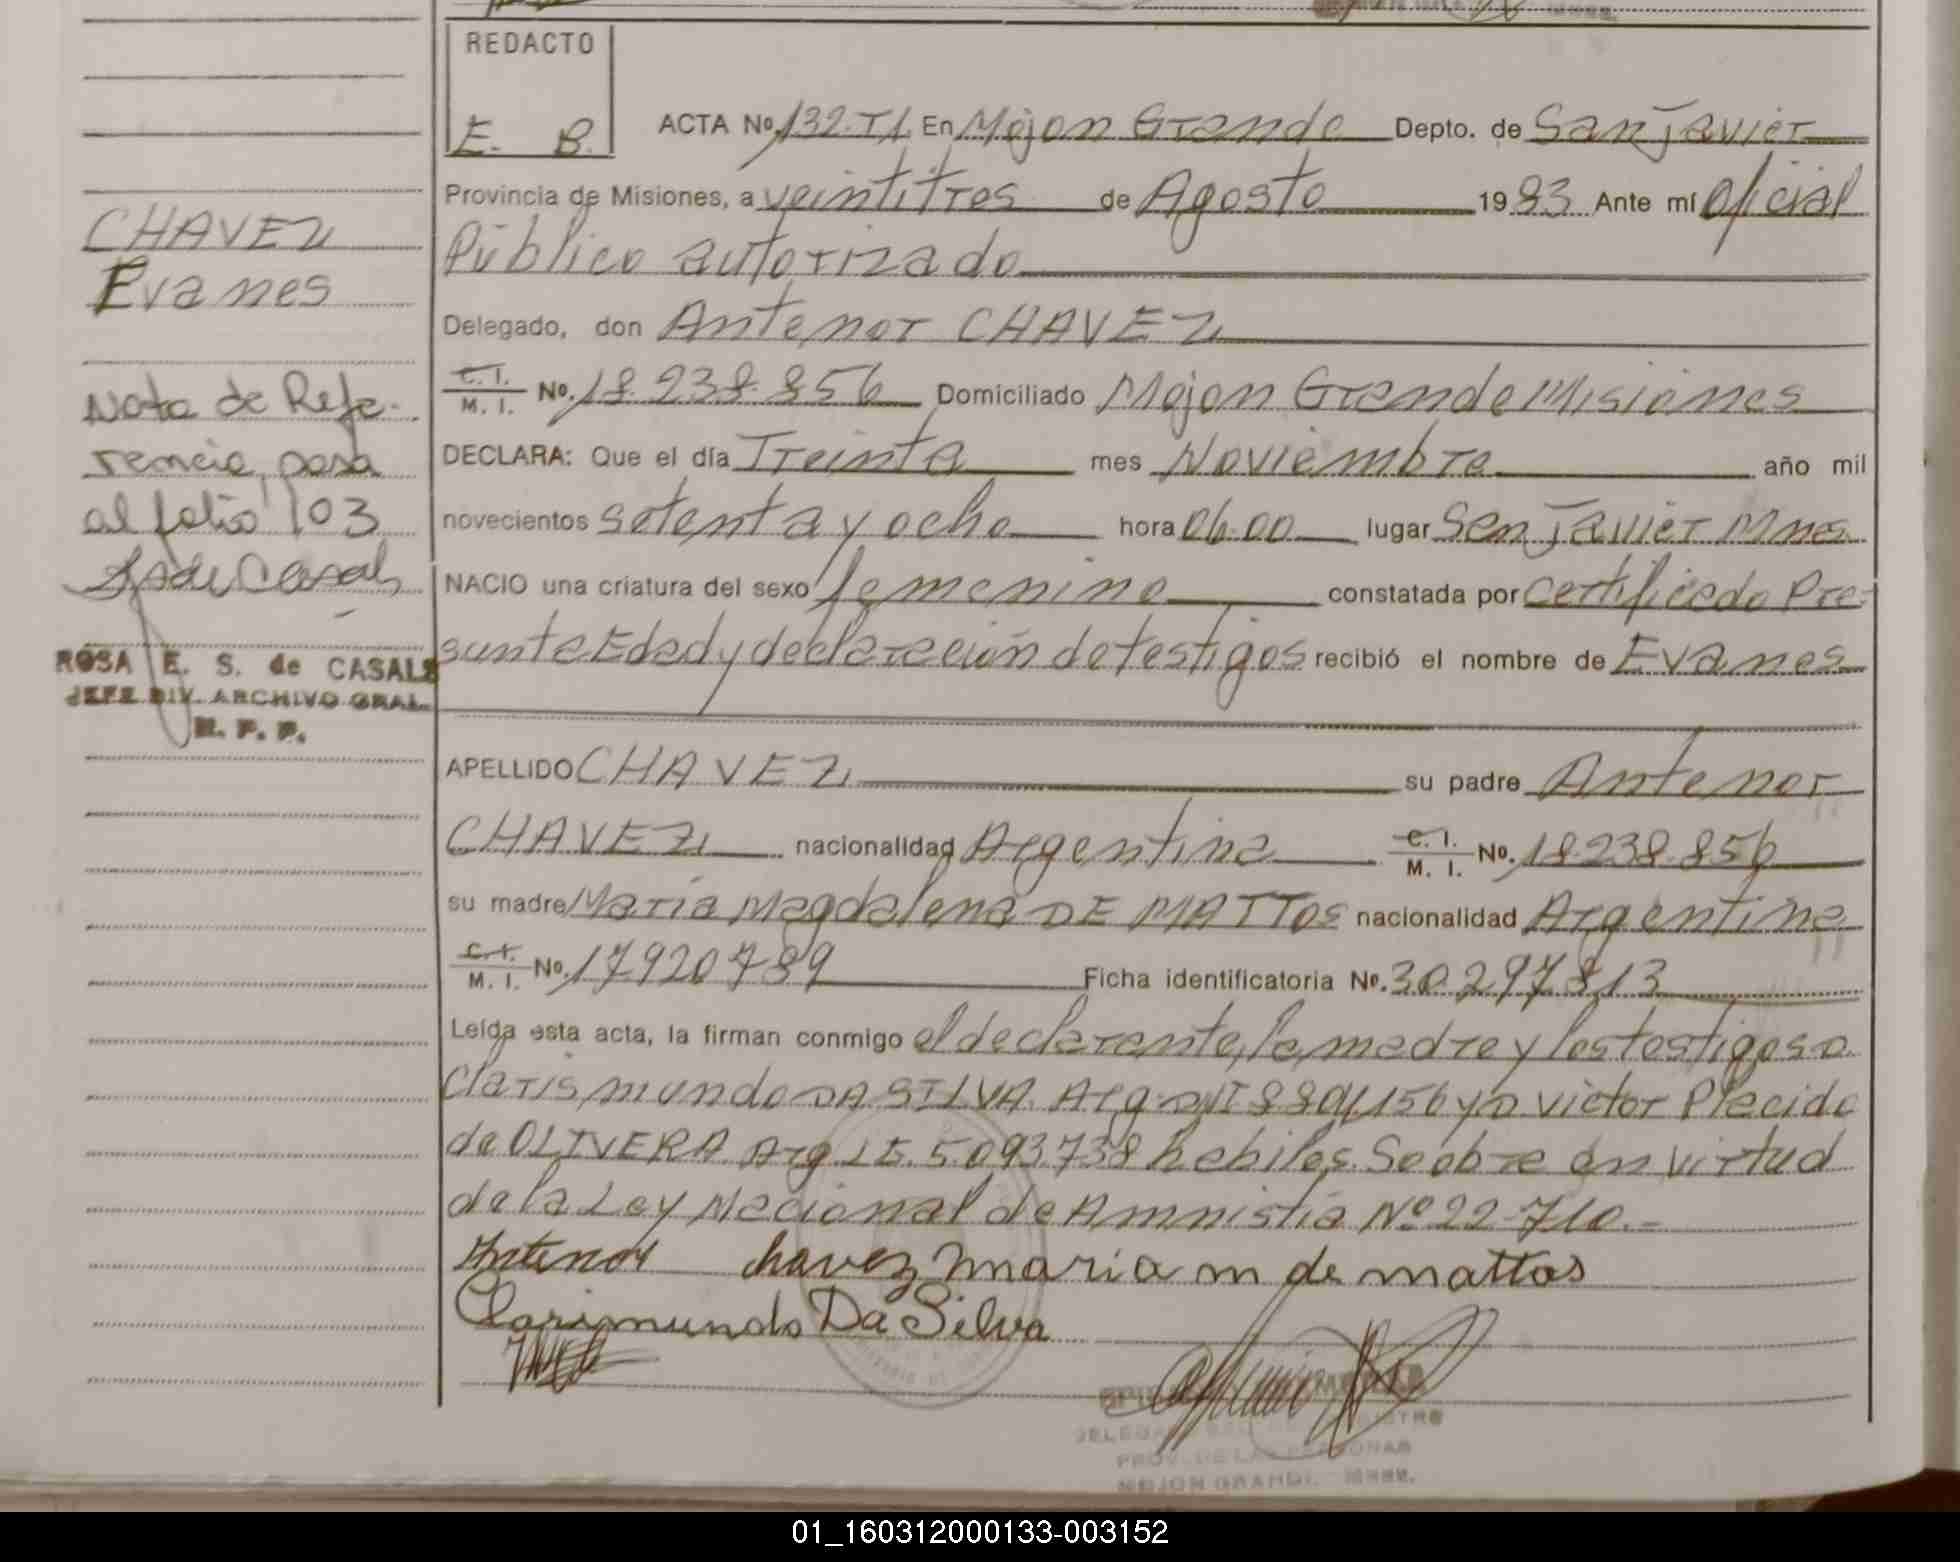 REDACTO
E. B.
ACTA No. 132.T1. En Mojon Grande Depto. de San Javier
Provincia de Misiones, a veintitres de Agosto 1983 Ante mí Oficial
Público autorizado
Delegado, don Antenor CHAVEZ
C. I. / M. I. No. 18.238.856 Domiciliado Mojon Grande Misiones
DECLARA: Que el día Treinta mes Noviembre año mil
novecientos setenta y ocho hora 06.00 lugar San Javier Mnes
NACIO una criatura del sexo femenino constatada por Certificado Pre-
sunta Edad y declaración de testigos recibió el nombre de Evanes
APELLIDO CHAVEZ su padre Antenor
CHAVEZ nacionalidad Argentina C. I. / M. I. No. 18.238.856
su madre María Magdalena DE MATTOS nacionalidad Argentina
C. I. / M. I. No. 17920789 Ficha identificatoria No. 30297813
Leída esta acta, la firman conmigo el declarante, la madre y los testigos D.
Clarismundo DA SILVA. Arg. DNI 8801156 y D Victor Placido
de OLIVERA Arg. LE. 5.093.738 habiles. Se obre en virtud
de la Ley Nacional de Amnistia Nº 22-710.-
Antenor chavez maria m de mattos
Clarimundo Da Silva
DELEGA
PROV. DE LAS PERSONAS
MOJON GRANDE MNES.
CHAVEZ
Evanes
Nota de Refe-
rencia, pasa
al folio 103
ROSA E. S. de CASALS
JEFE DIV. ARCHIVO GRAL.
R. P. P.
01_160312000133-003152